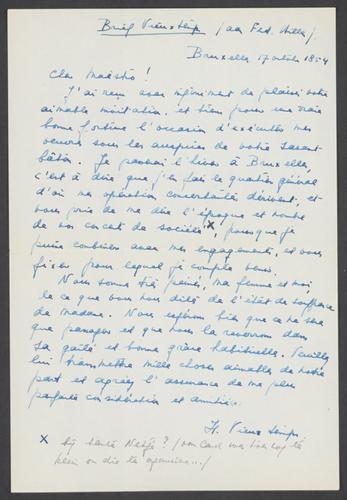 Brief Vieuxtemps (aan Fred. Hiller).
Bruxelles 17 octobre 1854
Cher Maëstro!
J'ai reçu avec infiniment de plaisir votre
aimable invitation, et tiens pour une vraie
bonne fortune l'occasion d'exécuter mes
oeuvres sous les auspices de votre savant
bâton. Je passerai l'hiver à Bruxelles,
c'est à dire que j'en fais le quartier général
d'où mes opérations concertantes dérivent, et
vous prie de me dire l'époque et nombre
de vos concerts de société x, pour que je
puisse combiner avec mes engagements, et vous
fixer pour lequel je compte venir.
Nous sommes très peinés, ma femme et moi,
de ce que vous nous dites de l'état de souffrance
de madame. Nous espérons bien que ce ne sera
que passager et que nous la reverrons dans
sa gaîté et bonne grâce habituelle. Veuillez
lui transmettre mille choses aimables de notre
part et agréez l'assurance de ma plus
parfaite considération et amitié.
H. Vieuxtemps
x bij